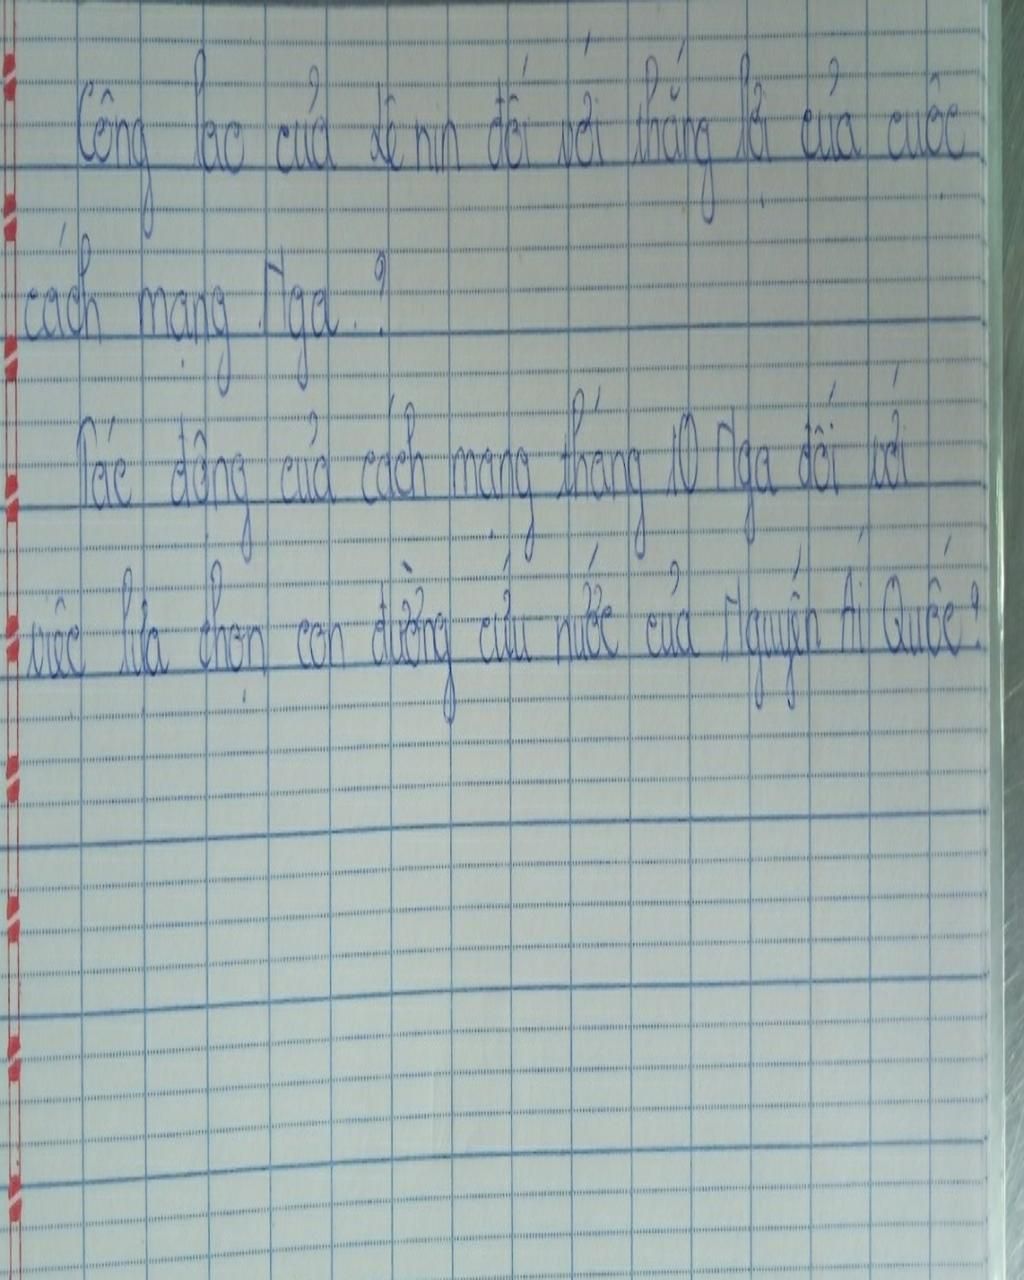 Công lao của Lê nin đối với thắng lợi của cuộc
cách mạng Nga.?
Tác động của cách mạng tháng 10 Nga đối với
việc lựa chọn con đường cứu nước của Nguyễn Ái Quốc?